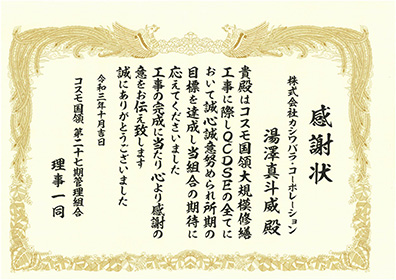 感謝状
株式会社カシワバラ・コーポレーション
湯澤真斗威 殿
貴殿はコスモ国領大規模修繕
工事に際しQCDSEの全てに
おいて誠心誠意努められ所期の
目標を達成し当組合の期待に
応えてくださいました
工事の完成に当たり心より感謝の
意をお伝え致します
誠にありがとうございました
令和三年十月吉日
コスモ国領 第二十七期管理組合
理事一同